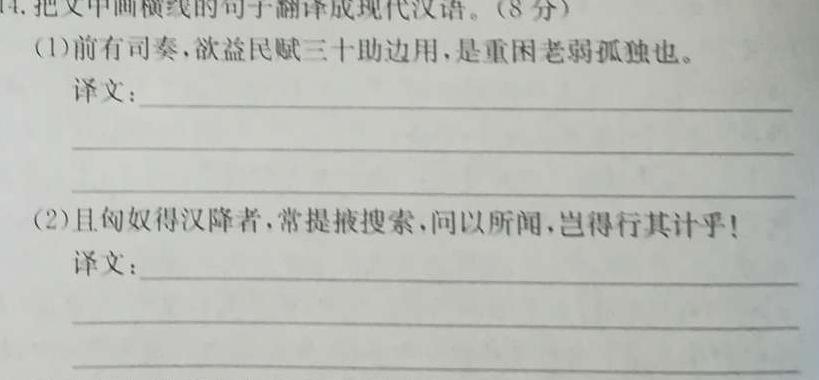 14.把文中画横线的句子翻译成现代汉语。(8分)
(1)前有司奏,欲益民赋三十助边用,是重困老弱孤独也。
译文:
(2)且匈奴得汉降者,常提掖搜索,问以所闻,岂得行其计乎!
译文: